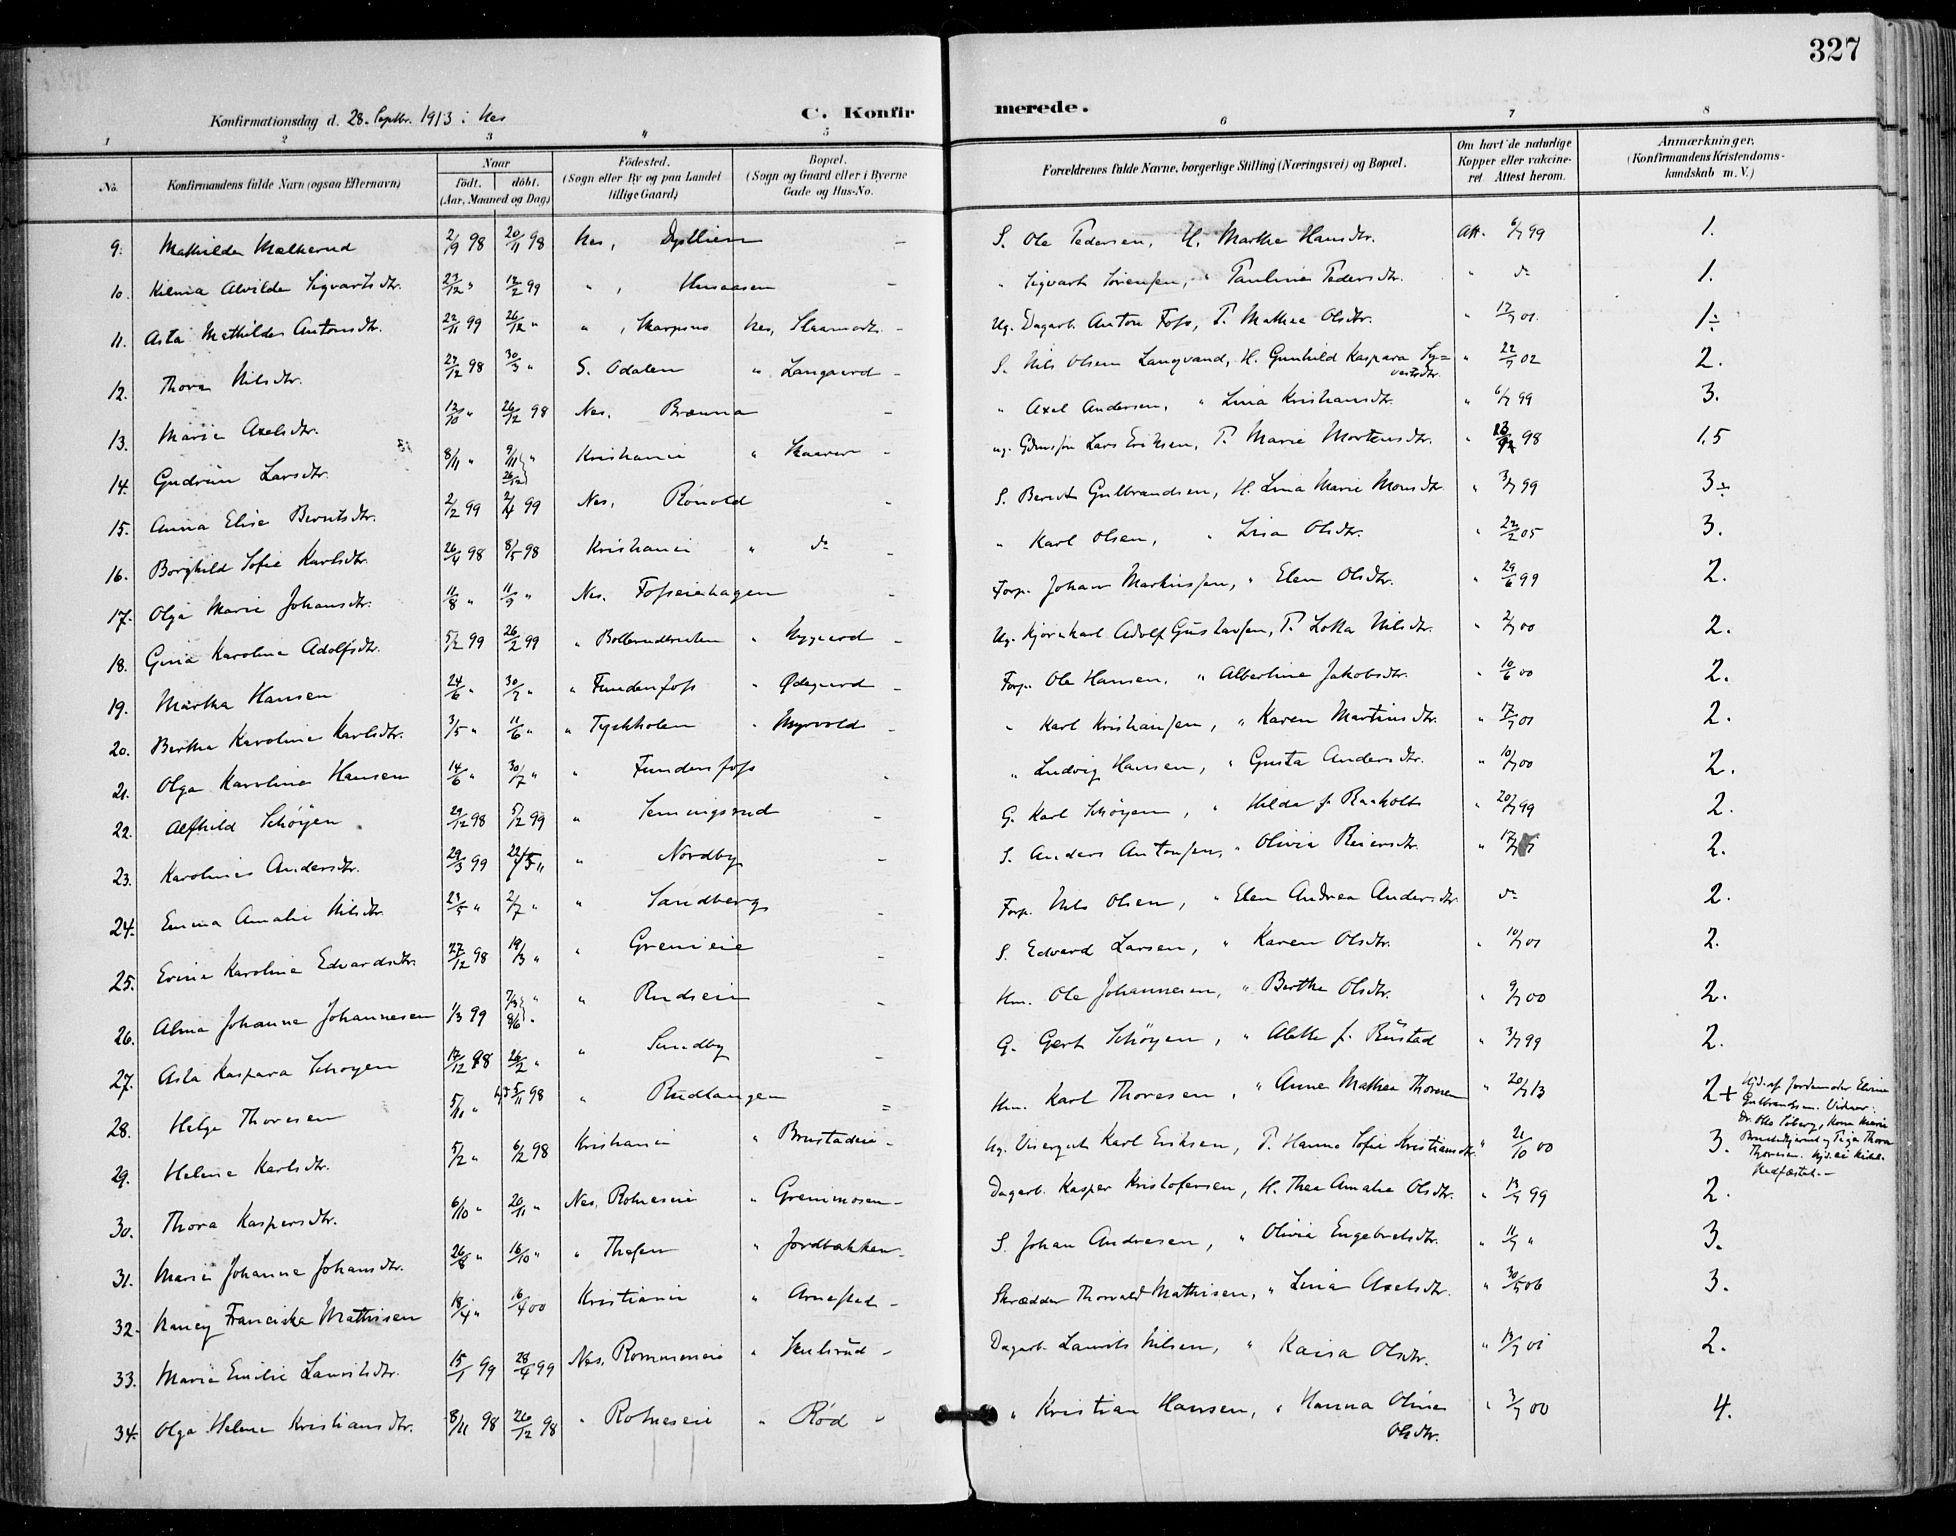 327
Konfirmationsdag d. 28. Septbr. 1913 i Nes
C. Konfirmerede.
1 2 3 " 5 6 7 8
No. Konfirmandens fulde Navn (ogsaa Efternavn) Naar födt. döbt. (Aar, Maaned og Dag) Födested. (Sogn eller By og paa Landet tillige Gaard) Bopæl. (Sogn og Gaard eller i Byerne Gade og Hus-No. Forældrenes fulde Navne, borgerlige Stilling (Næringsvei) og Bopæl. Om havt de naturlige Kopper eller vakcineret Attest herom. Anmærkninger. (Konfirmandens Kristendomskundskab m. V.)
9. Mathilde Mælkerud 2/9 98 20/11 98 Nes, Dystlien - S. Ole Pedersen, H. Marthe Hansdtr. Att. 6/7 99 1.
10. Alvilde Sigvartsdtr. 23/12 " 12/2 99 " , - " Sigvart Sørensen, " Pauline Pedersdtr. " do 1.
11. Asta Mathilde Antonsdtr. 22/11 99 26/12 " " , Skarpsno Nes, - Ug. Dagarb. Anton Foss, P. Mathea Olsdtr. " 17/7 01. 1÷
12. Thora Nilsdtr. 27/12 98 30/3 " S. Odalen " Langaard - S. Nils Olsen Langvand, H. Gunhild Kaspara Syvertsdtr. " 22/7 02 2.
13. Marie Axelsdtr. 12/10 " 26/12 98 Nes, Brænna - " Axel Andersen, " Lina Kristiansdtr. " 6/7 99 3.
14. Gudrun Larsdtr. 8/11 " 9/11 " 26/12 Kristiania " Skaarer - ug. Lars Eriksen, P. Marie Mortensdtr. " 98 1.5
15. Anna Elise Berntsdtr. 2/2 99 2/4 99 Nes, Rönold - S. Bernt Gulbrandsen, H. Lina Marie Monsdtr. " 3/7 99 3÷
16. Borghild Sofie Karlsdtr. 26/4 98 8/5 98 Kristiania " do - " Karl Olsen, " Lisa Olsdtr. " 22/2 05 3.
17. Olga Marie Johansdtr. 11/8 " 11/9 " Nes. Fosseiehagen - Forp. Johan Markussen, " Elen Olsdtr. " 29/6 99 2.
18. Gina Karoline Adolfsdtr. 5/2 99 26/2 99 " " Nygaard - Ug. Kjørekarl Adolf Gustavsen, P. Lotta Nilsdtr. " 2/7 00 2.
19. Martha Hansen 24/6 " 30/7 " " Fundenfoss " Ødegaard - Forp. Ole Hansen, " Albertine Jakobsdtr. " 10/6 00 2.
20. Berthe Karoline Karlsdtr. 3/5 " 11/6 " " Tyskholen " Myrvold - " Karl Kristiansen, " Karen Martinsdtr. " 17/7 01 2.
21. Olga Karoline Hansen 14/6 " 30/7 " " Fundenfoss - " Ludvig Hansen, " Gusta Andersdtr. " 10/7 00 2.
22. Alfhild Schöyen 29/12 98 5/2 99 " Semingsrud - G. Karl Schöyen, " Hilda f. Raaholt " 20/7 99 2.
23. Karoline Andersdtr. 29/3 99 22/5 " " Nordby - S. Anders Antonsen, " Olivia Reiersdtr. " 17/7 2.
24. Emma Amalie Nilsdtr. 23/5 " 2/7 " " Sandberg - Forp. Nils Olsen, " Elen Andrea Andersdtr. do 2.
25. Karoline Edvardsdtr. 27/12 98 19/3 " " Grenieie - S. Edvard Larsen, " Karen Olsdtr. " 10/7 01 2.
26. Alma Johanne Johannesen 1/3 99 7/3 " 8/6 " " Rudseie - Hm. Ole Johannesen, " Berthe Olsdtr. " 9/7 00 2.
27. Asta Kaspara Schøyen 17/12 98 26/2 " " Sundby - G. Gert Schöyen, " Alette f. Rustad " 3/7 99 2.
28. Helga Thoresen 5/11 " 5/11 98 " Rudtangen = Hm. Karl Thoresen, " Anne Mathea Thoresen " 20/7 13 2+ Hjd. af Jordemoder Elvine Gulbrandsen. Vidner: Thoresen. Hjd. ei kirkel. stadfæstet. -
29. Helene Karlsdtr. 5/2 " 6/2 98 Kristiania " Brustadeie - Ug. Visergut Karl Eriksen, P. Hanna Sofie Kristiansdtr. " 21/10 00 3.
30. Thora Kaspersdtr. 6/10 " 20/11 " Nes. Rotneseie " Grenimosen - Dagarb. Kasper Kristofersen, H. Thea Amalie Olsdtr. " 13/7 99 2.
31. Marie Johanne Johansdtr. 26/8 " 16/10 " " " Jordbakken - S. Johan Andresen, " Olivia Engebretsdtr. " 11/7 " 3.
32. Nancy Franciska Mathisen 18/4 " 16/4 00 Kristiania " Arnestad - Skrædder Thorvald Mathisen, " Lina Axelsdtr. " 30/5 06 3.
33. Marie Emilie Lauritsdtr. 15/1 99 28/4 99 Nes. Rommeneie " Skulsrud - Dagarb. Laurits Nilsen, " Kaisa Olsdtr. " 13/7 01 2.
34. Olga Helene Kristiansdtr. 8/11 98 26/12 98 " Rotneseie " Rød " " Kristian Hansen, " Hanna Oline Olsdtr. " 3/7 00 4.